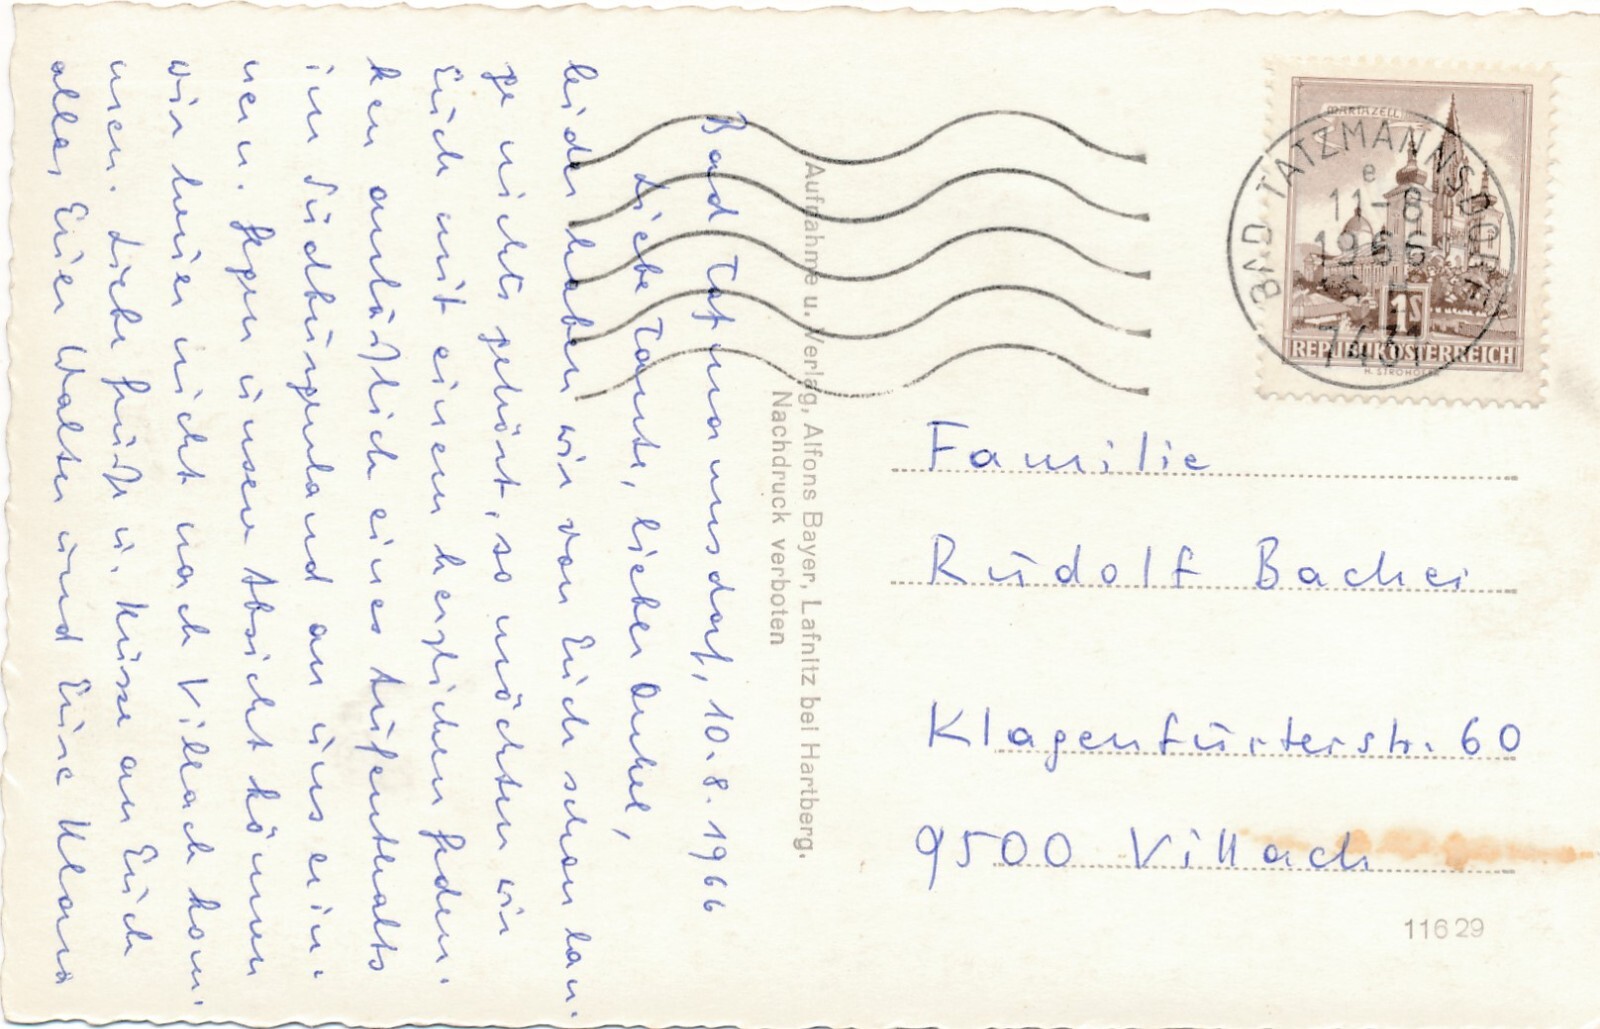 Bad Tatzmannsdorf, 10.8.1966
Liebe Tante, lieber Onkel,
leider haben wir von Euch schon lan-
ge nichts gehört, so möchten wir
Euch mit einem herzlichen Geden-
ken anläßlich eines Aufenthalts
im Südburgenland an uns erin-
nern. Gegen unsere Absicht können
wir heuer nicht nach Villach kom-
men. Liebe Grüße u. Küsse an Euch
alles, Euer Walter und Eure Klara
Aufnahme u. Verlag, Alfons Bayer, Lafnitz bei Hartberg.
Nachdruck verboten
MARIAZELL
1S
REPUBLIK ÖSTERREICH
BAD TATZMANNSDORF
e
11-8
1966
7431
Familie
Rudolf Bacher
Klagenfurterstr. 60
9500 Villach
11629